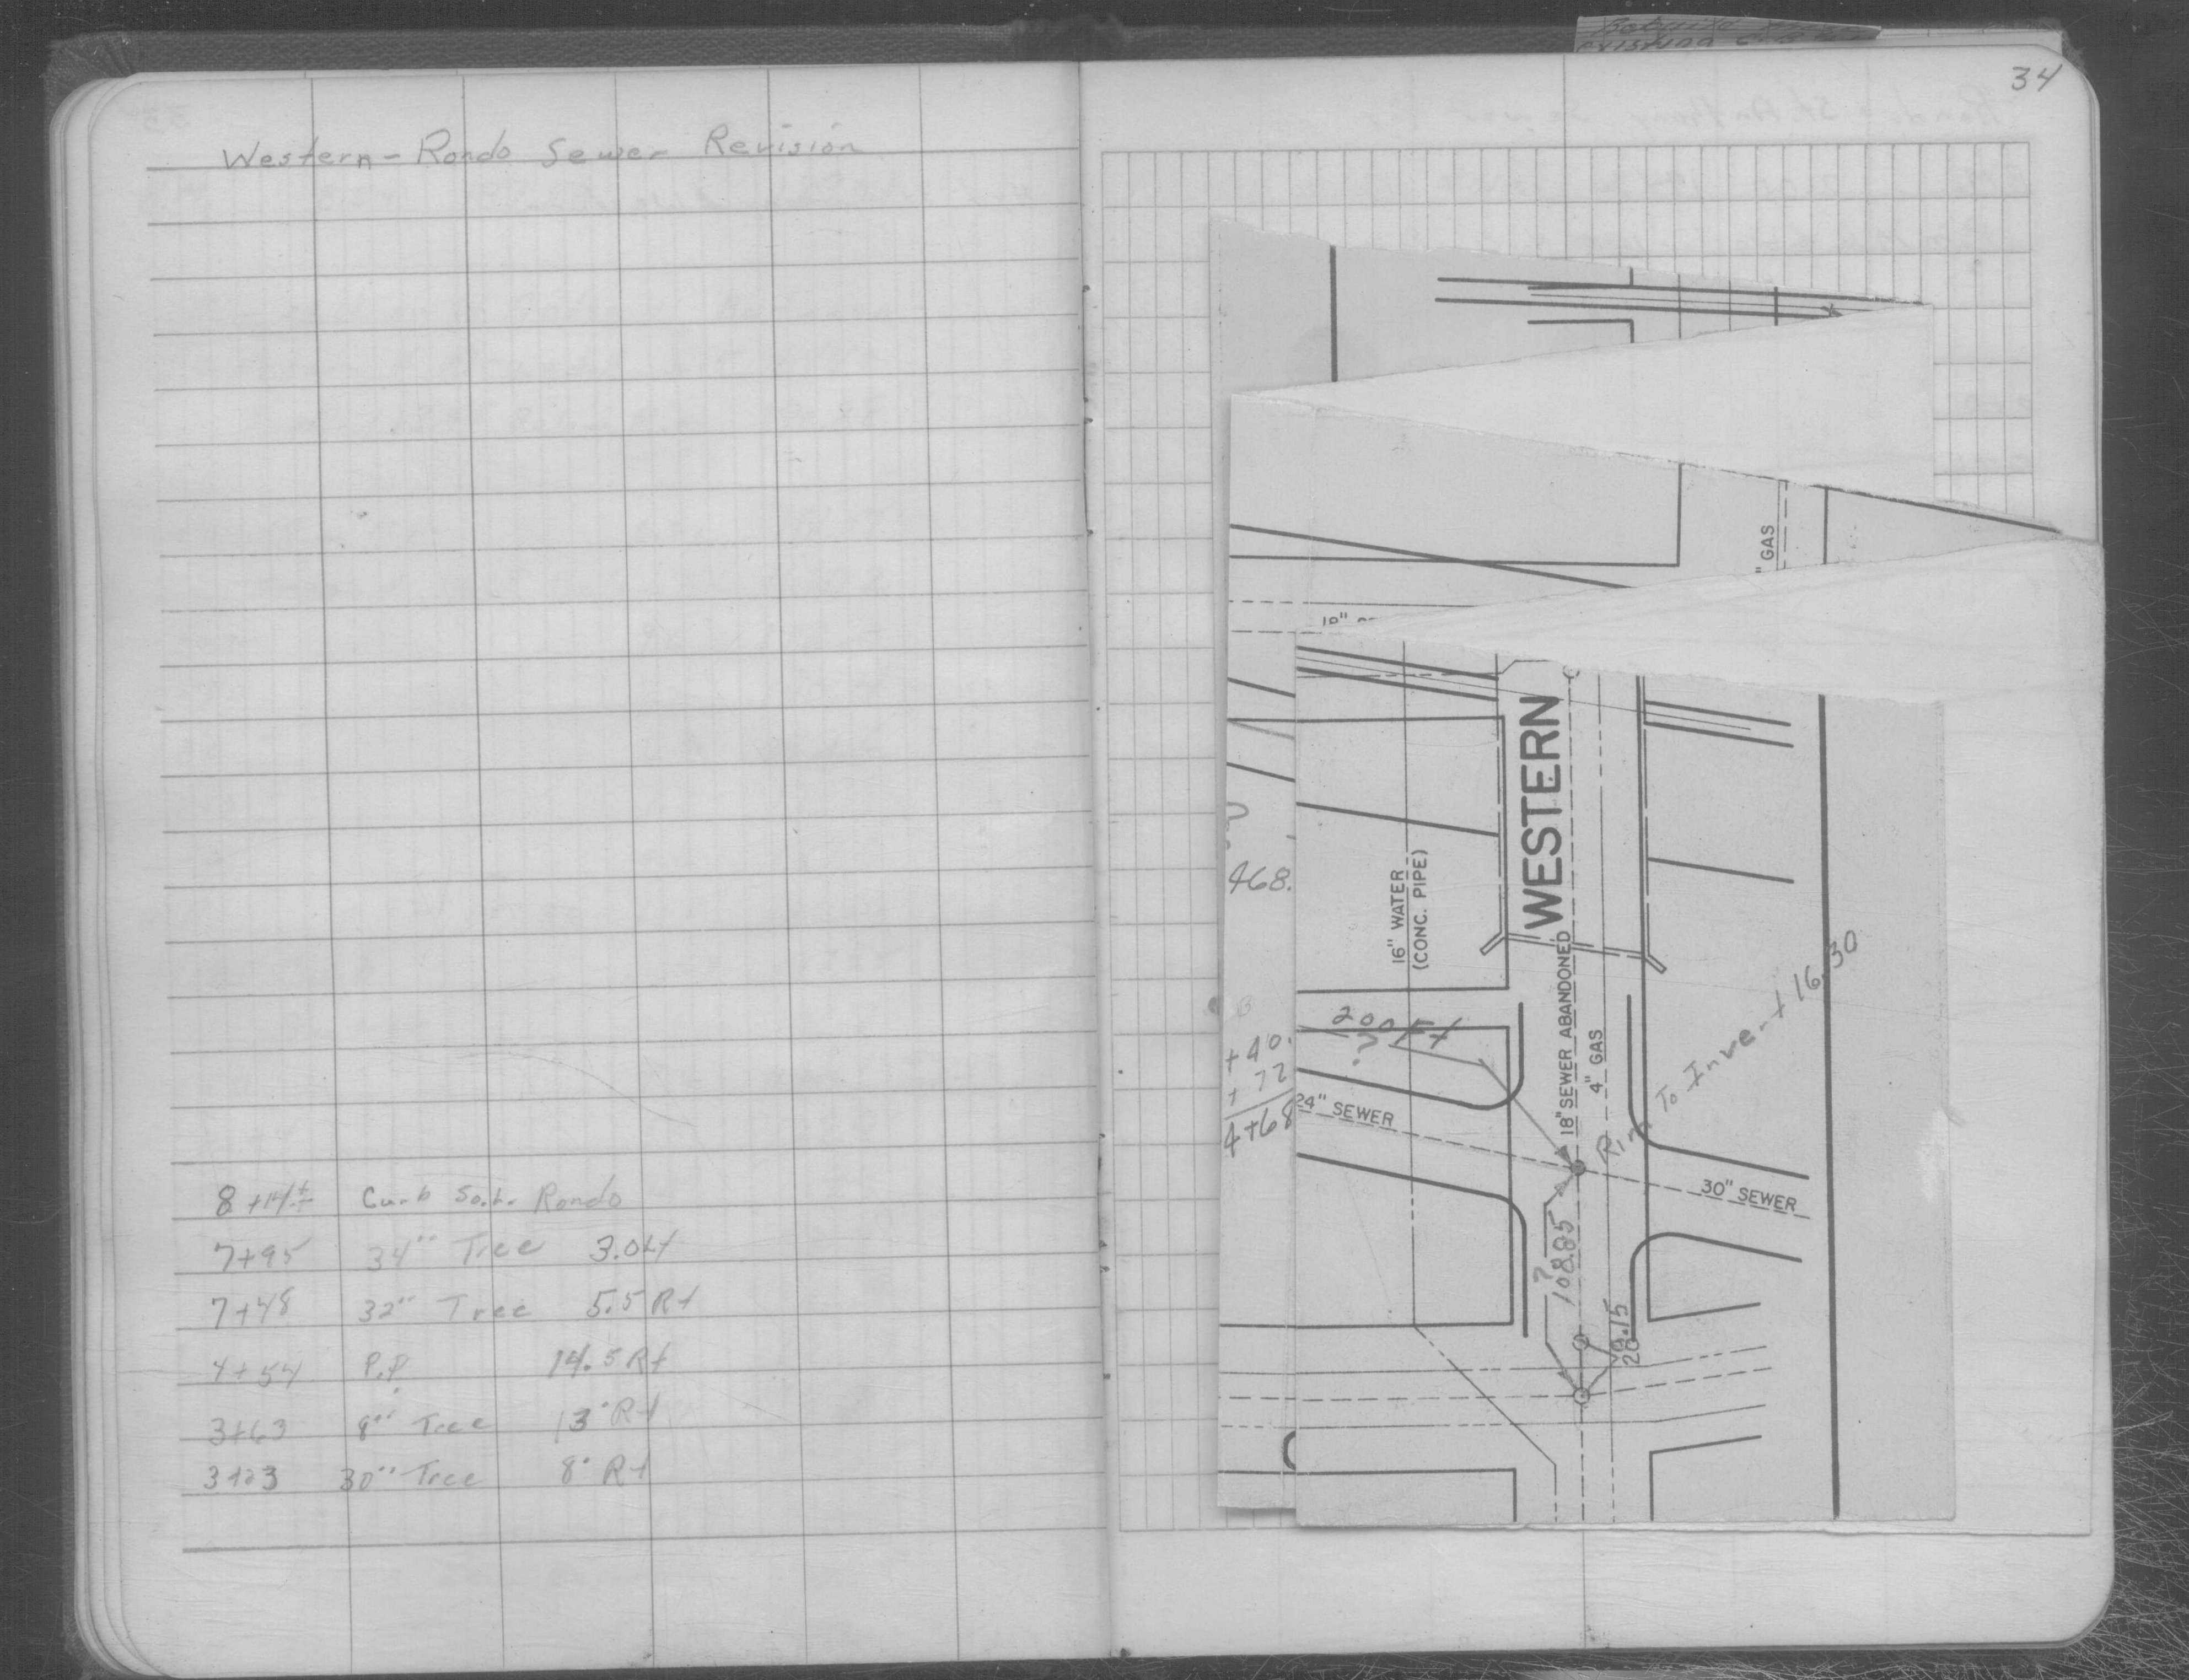 Western - Rondo Sewer Revision
8+14± Curb So. L. Rondo
7+95 34" Tree 3.0 Lt
7+48 32" Tree 5.5 Rt
4+54 P.P. 14.5 Rt
3+63 8" Tree 13' Rt
3+23 30" Tree 8' Rt
existing
34
" GAS
10"
WESTERN
468.
16" WATER
(CONC. PIPE)
18" SEWER ABANDONED
4" GAS
200 Ft
?
+40.
+ 72
4+68
24" SEWER
Rim To Invert 16.30
30" SEWER
?
108.85
20.15